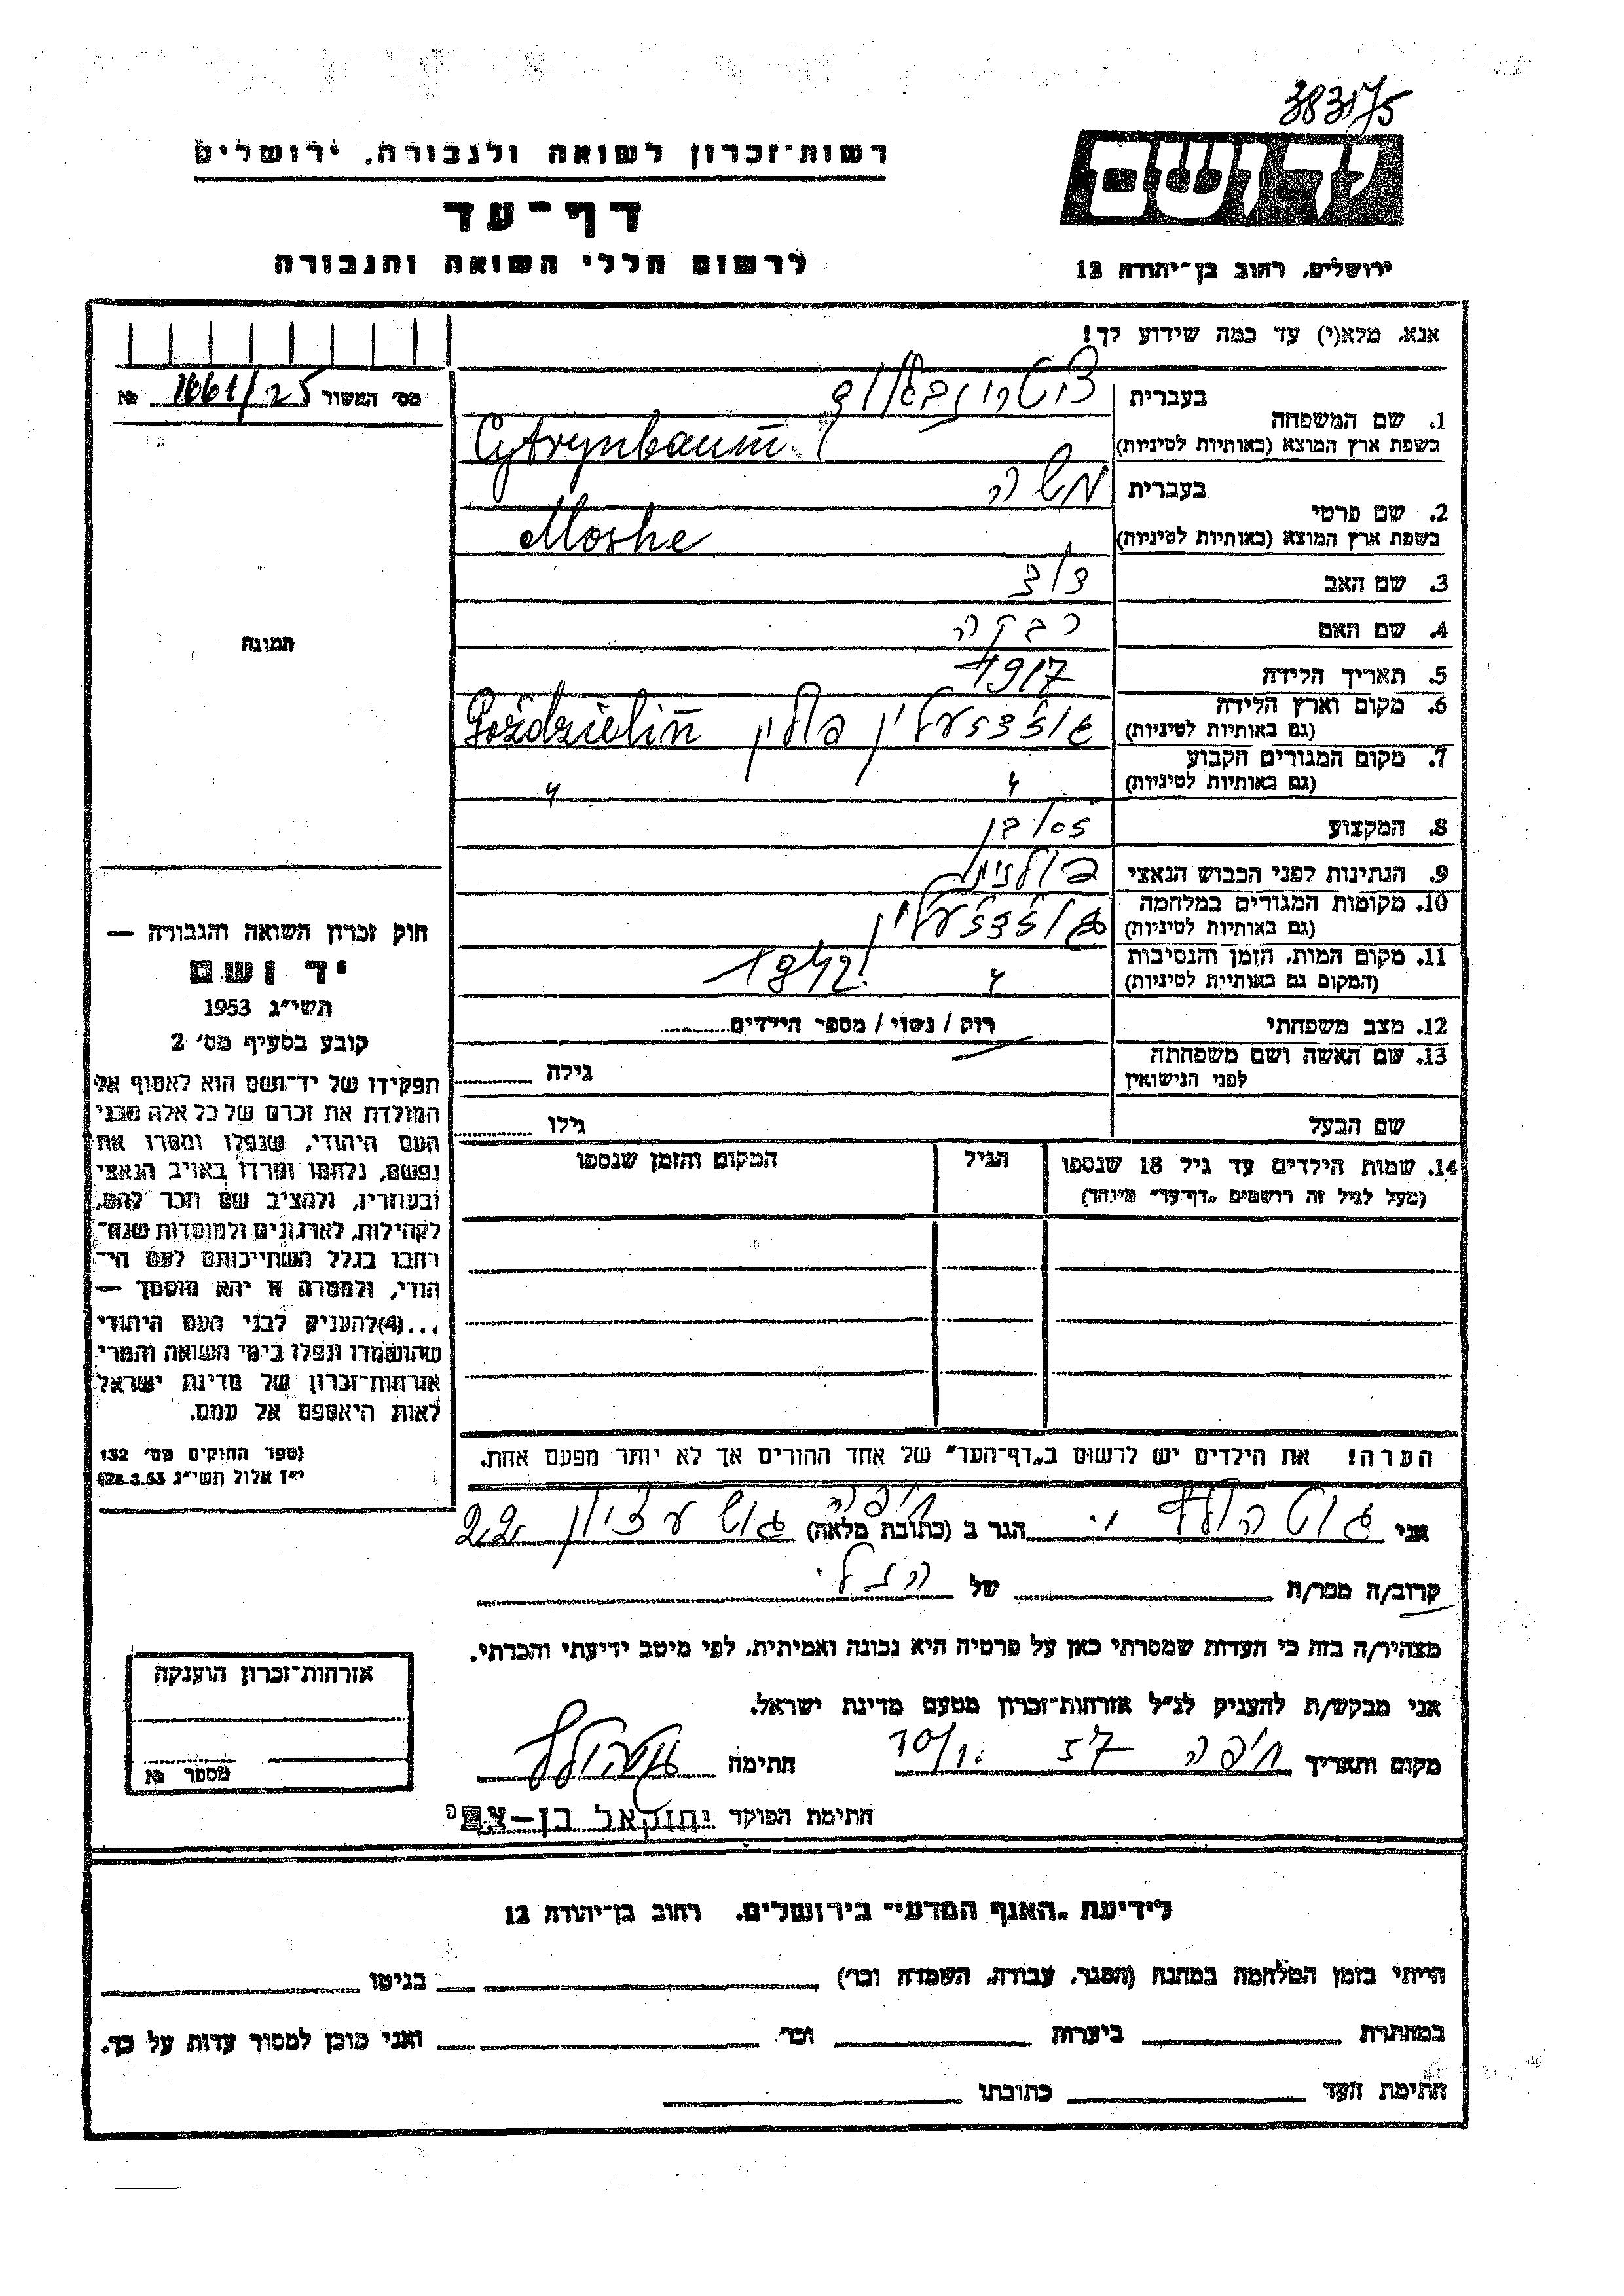 383175
רשות־זכרון לשואה ולגבורה, ירושלים
יד ושם
דף־עד
לרשום חללי השואה והגבורה
ירושלים, רחוב בן־יהודה 12
אנא, מלא(י) עד כמה שידוע לך!
מס׳ המשור 1661/25 №
תמונה
1. שם המשפחה
בעברית ציטרינבאום
בשפת ארץ המוצא (באותיות לטיניות) Cytrynbaum
2. שם פרטי
בעברית משה
בשפת ארץ המוצא (באותיות לטיניות) Moshe
3. שם האב
4. שם האם רבקה
5. תאריך הלידה 1917
6. מקום וארץ הלידה פולין Goździelin
(גם באותיות לטיניות)
7. מקום המגורים הקבוע
(גם באותיות לטיניות) " "
8. המקצוע
9. הנתינות לפני הכבוש הנאצי פולנית
10. מקומות המגורים במלחמה
(גם באותיות לטיניות)
11. מקום המות, הזמן והנסיבות
(המקום גם באותיות לטיניות) " 1942
12. מצב משפחתי רוק / נשוי / מספר הילדים
13. שם האשה ושם משפחתה
לפני הנישואין גילה
שם הבעל גילו
14. שמות הילדים עד גיל 18 שנספו הגיל המקום והזמן שנספו
(מעל לגיל זה רושמים "דף־עד" מיוחד)
חוק זכרון השואה והגבורה —
יד ושם
תשי״ג 1953
קובע בסעיף מס׳ 2
תפקידו של יד־ושם הוא לאסוף אל
המולדת את זכרם של כל אלה מבני
העם היהודי, שנפלו ומסרו את
נפשם, נלחמו ומרדו באויב הנאצי
ובעוזריו, ולהציב שם וזכר להם,
לקהילות, לארגונים ולמוסדות שנח־
רבו בגלל השתייכותם לעם הי־
הודי, ולמטרה זו יהא מוסמך —
...(4)להעניק לבני העם היהודי
שהושמדו ונפלו בימי השואה והמרי
אזרחות־זכרון של מדינת ישראל
לאות היאספם אל עמם.
(ספר החוקים מס׳ 132
י״ז אלול תשי״ג 28.8.53)
הערה! את הילדים יש לרשום ב"דף־העד" של אחד ההורים אך לא יותר מפעם אחת.
אני גוטהולף י. הגר ב (כתובת מלאה) חיפה גוש עציון 22
קרוב/ה מכר/ה של הנ״ל
מצהיר/ה בזה כי העדות שמסרתי כאן על פרטיה היא נכונה ואמיתית, לפי מיטב ידיעתי והכרתי.
אני מבקש/ת להעניק לנ״ל אזרחות־זכרון מטעם מדינת ישראל.
מקום ותאריך חיפה 57 חתימה
חתימת הפוקד יחזקאל בן-צבי
אזרחות־זכרון הוענקה
מספר №
לידיעת "האגף המדעי" בירושלים, רחוב בן־יהודה 12
הייתי בזמן המלחמה במחנה (הסגר, עבודה, השמדה וכו׳) בגיטו
במחתרת ביערות וכו׳ ואני מוכן למסור עדות על כך.
חתימת העד כתובתו